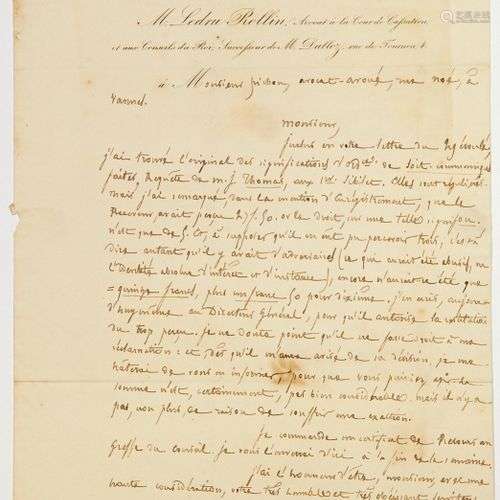 M. Ledru Rollin, Avocat à la Cour de Cassation,
et aux Conseils du Roi, Successeur de M. Dalloz, rue de Tournon,
à Monsieur avocat-avoué, à
Vannes.
Monsieur,
votre lettre du
j'ai trouvé l'original des significations d' de
faites, Requête de M. J. Thomas, aux Elles sont régulières
mais j'ai remarqué dans la mention d'enregistrement, que le
Receveur avait perçu ou le droit, sur une telle
n'est que de à supposer qu'il en ait pu percevoir trois, c'est à
dire autant qu'il y avait d'adversaires (ce qui aurait été abusif, vu
l'identité absolue d'intérêt et d'instance), encore n'aurait-ce été que
quinze francs, plus un franc 50 pour dixième. J'en écris,
d'huy même au Directeur Général, pour qu'il autorise la restitution
du trop perçu. Je ne doute point qu'il ne fasse droit à ma
réclamation: et dès qu'il m'aura avisé de sa décision, je me
hâterai de vous en informer, pour que vous puissiez La
somme n'est, certainement, pas bien considérable. mais il n'y a
pas non plus de raison de souffrir une exaction.
Je commande un certificat de Recours au
greffe du conseil. je vous l'enverrai d'ici à la fin de la semaine.
J'ai l'honneur d'être, monsieur, avec une
haute considération, votre très humble et très obéissant serviteur